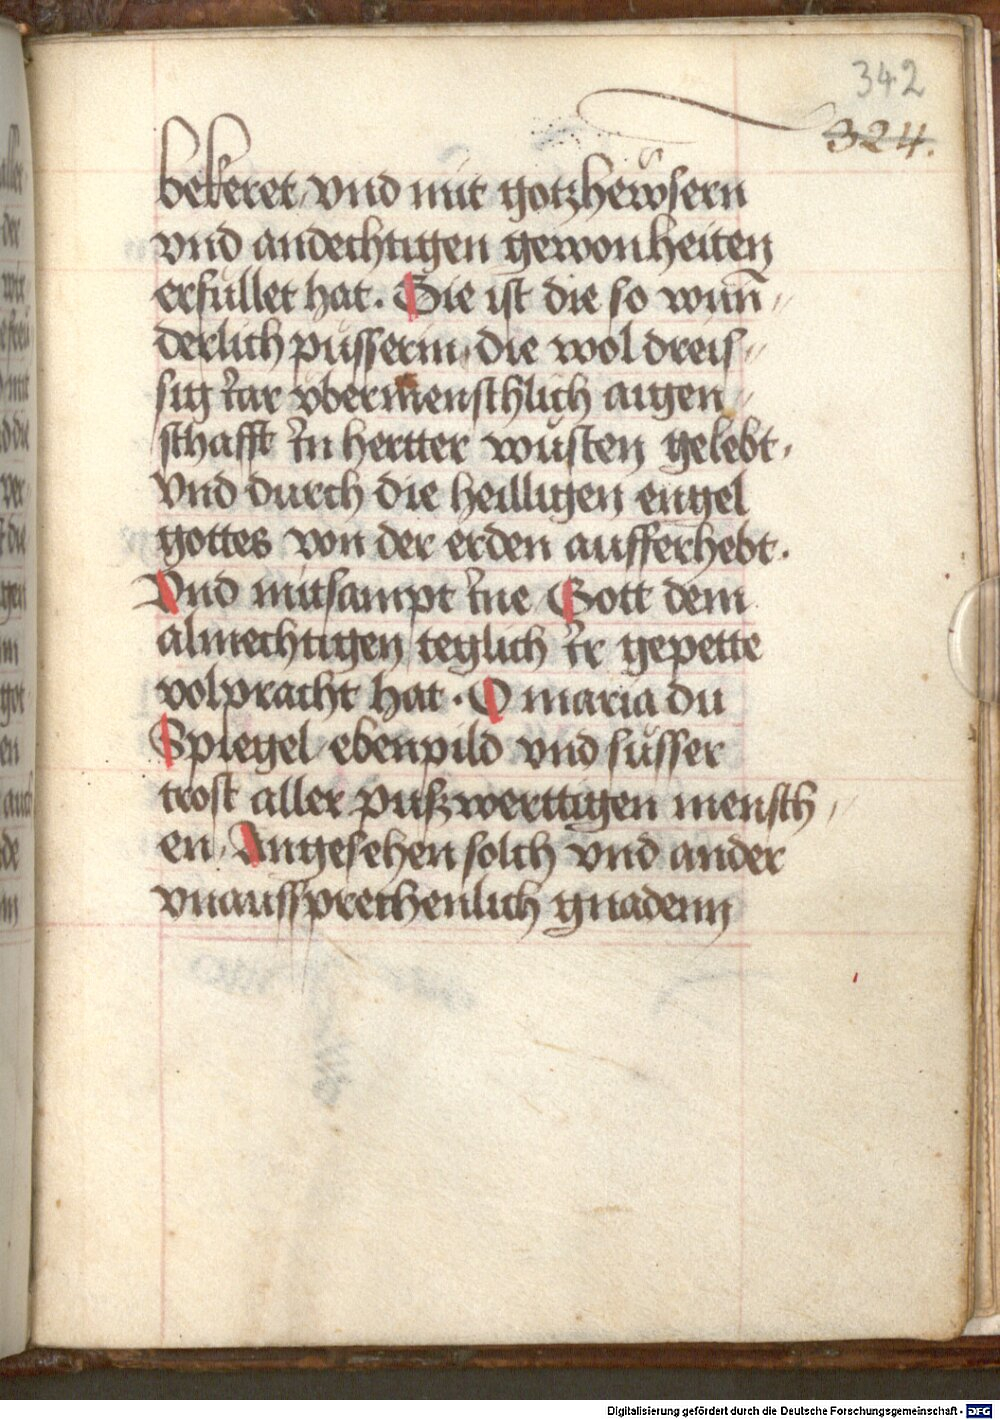 342
324.
bekeret, vnd mit gotzheẅsern
vnd andechtigen gewonheiten
erfüllet hat. Die ist die so wun̄-
derlich püsserin, die wol dreis-
sig ẏar vbermenschlich aigen-
schafft ẏn hertter wüsten gelebt,
vnd durch die heilligen engel
gottes von der erden aufferhebt.
Vnd mitsampt ẏne Gott dem
almechtigen teglich ẏr gepette
volpracht hat. O maria du
Spiegel, ebenpild vnd süsser
trost aller pußwerttigen mensch-
en, Angesehen solch vnd ander
vnaussprechenlich gnadenn
Digitalisierung gefördert durch die Deutsche Forschungsgemeinschaft - DFG